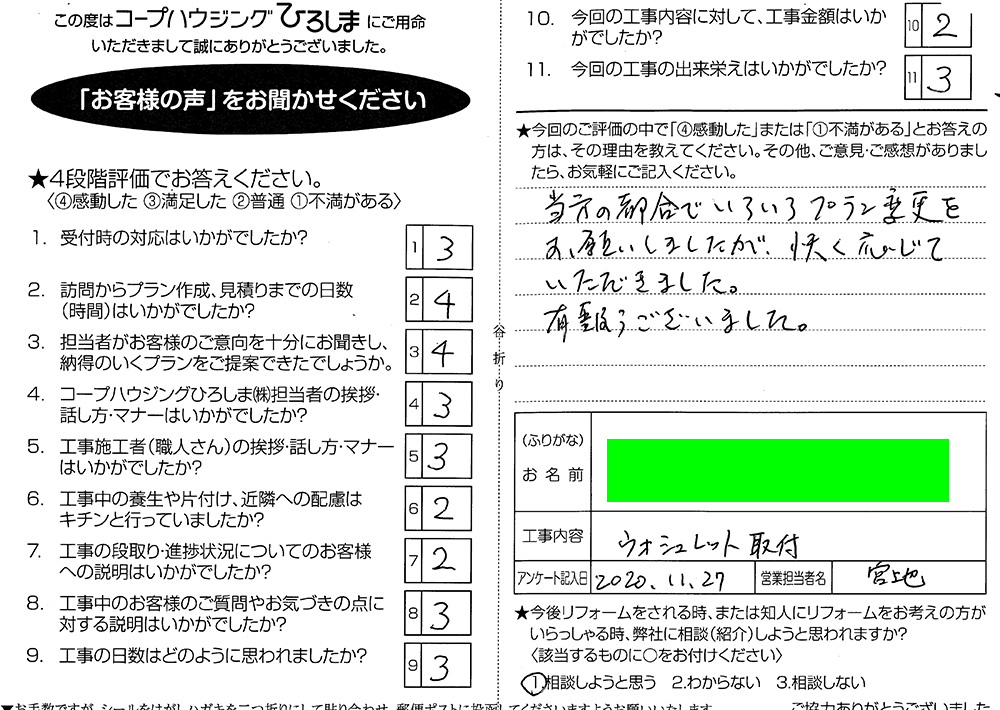 この度はコープハウジングひろしまにご用命
いただきまして誠にありがとうございました。
「お客様の声」をお聞かせください
★4段階評価でお答えください。
〈④感動した ③満足した ②普通 ①不満がある〉
1. 受付時の対応はいかがでしたか?
1 3
2. 訪問からプラン作成、見積りまでの日数
(時間)はいかがでしたか?
2 4
3. 担当者がお客様のご意向を十分にお聞きし、
納得のいくプランをご提案できたでしょうか。
3 4
4. コープハウジングひろしま㈱担当者の挨拶・
話し方・マナーはいかがでしたか?
4 3
5. 工事施工者(職人さん)の挨拶・話し方・マナー
はいかがでしたか?
5 3
6. 工事中の養生や片付け、近隣への配慮は
キチンと行っていましたか?
6 2
7. 工事の段取り・進捗状況についてのお客様
への説明はいかがでしたか?
7 2
8. 工事中のお客様のご質問やお気づきの点に
対する説明はいかがでしたか?
8 3
9. 工事の日数はどのように思われましたか?
9 3
▼お手数ですが、シールをはがしハガキを二つ折りにして貼り合わせ、郵便ポストに投函してくださいますようお願いいたします。
谷折り
10. 今回の工事内容に対して、工事金額はいか
がでしたか?
10 2
11. 今回の工事の出来栄えはいかがでしたか?
11 3
★今回のご評価の中で「④感動した」または「①不満がある」とお答えの
方は、その理由を教えてください。その他、ご意見・ご感想がありまし
たら、お気軽にご記入ください。
当方の都合でいろいろプラン変更を
お願いしましたが、快く応じて
いただきました。
有難うございました。
(ふりがな)
お名前
工事内容 ウォシュレット取付
アンケート記入日 2020.11.27 営業担当者名 宮地
★今後リフォームをされる時、または知人にリフォームをお考えの方が
いらっしゃる時、弊社に相談(紹介)しようと思われますか?
〈該当するものに○をお付けください〉
1.相談しようと思う 2.わからない 3.相談しない
ご協力ありがとうございました